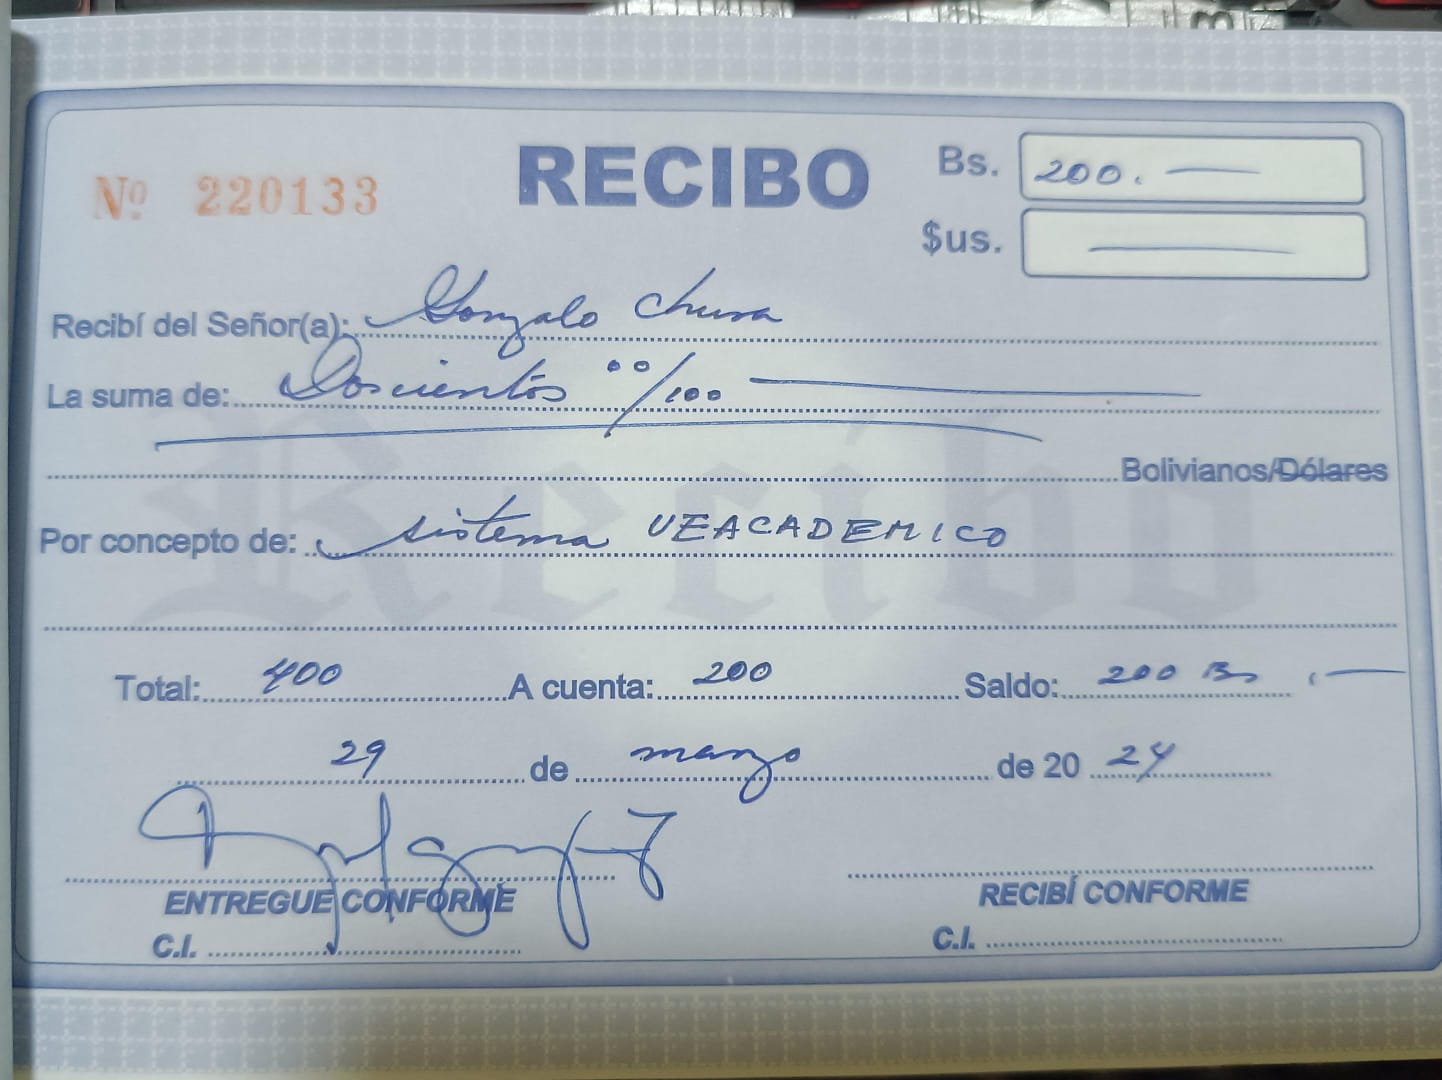 Nº 220133
RECIBO
Bs. 200.
$us.
Recibí del Señor(a): Gonzalo Chura
La suma de: Doscientos 00/100
Bolivianos/Dólares
Recibo
Por concepto de: sistema UEACADEMICO
Total: 400 A cuenta: 200 Saldo: 200 Bs
29 de marzo de 20 24
ENTREGUE CONFORME
RECIBÍ CONFORME
C.I.
C.I.